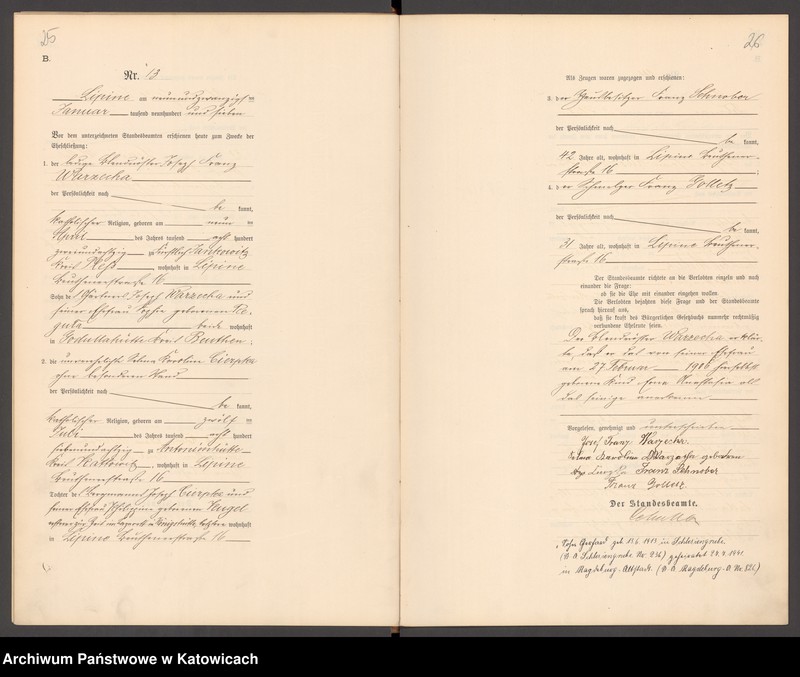 25
B.
Nr. 13
Lipine am neunundzwanzigsten
Januar tausend neunhundert und sieben
Vor dem unterzeichneten Standesbeamten erschienen heute zum Zwecke der
Eheschließung:
1. der ledige Josef Franz
Warzecha
der Persönlichkeit nach
be kannt,
katholischer Religion, geboren am neun
April des Jahres tausend acht hundert
zweiundachtzig zu Jankowitz
Kreis Pleß, wohnhaft in Lipine
Beuthenerstraße 16
Sohn des Josef Warzecha und
seiner Ehefrau geborenen
beide wohnhaft
in Godullahütte Kreis Beuthen;
2. die unverehelichte Selma Karoline Cierpka
ohne besonderen Stand
der Persönlichkeit nach
be kannt,
katholischer Religion, geboren am zwölf
Juli des Jahres tausend acht hundert
siebenundachtzig zu Antonienhütte
Kreis Kattowitz, wohnhaft in Lipine
Beuthenerstraße 16
Tochter des Bergmanns Josef Cierpka und
seiner Ehefrau Philippine geborenen Kugel
in Königshütte, letztere wohnhaft
in Lipine Beuthenerstraße 16
26
Als Zeugen waren zugezogen und erschienen:
3. der Hausbesitzer Franz Schnober
der Persönlichkeit nach
be kannt,
42 Jahre alt, wohnhaft in Lipine Beuthener-
straße 16;
4. der Schmelzer Franz Golletz
der Persönlichkeit nach
be kannt,
31 Jahre alt, wohnhaft in Lipine Beuthener-
straße 16
Der Standesbeamte richtete an die Verlobten einzeln und nach
einander die Frage:
ob sie die Ehe mit einander eingehen wollen.
Die Verlobten bejahten diese Frage und der Standesbeamte
sprach hierauf aus,
daß sie kraft des Bürgerlichen Gesetzbuchs nunmehr rechtmäßig
verbundene Eheleute seien.
Der Warzecha erklär-
te, daß er das von seiner Ehefrau
am 27 Februar 1906
geborene Kind Anastasia als
das seinige anerkenne
Vorgelesen, genehmigt und unterschrieben
Josef Franz Warzecha.
Selma Karolina Warzecha geborene
Franz Schnober
Franz Golletz
Der Standesbeamte.
1. Sohn Gerhard geb. 13.6.1913 in Schlesiengrube.
(St. A. Schlesiengrube Nr. 236) geheiratet 24.9.1941
in Magdeburg-Altstadt. (St. A. Magdeburg-A Nr. 826)
Archiwum Państwowe w Katowicach